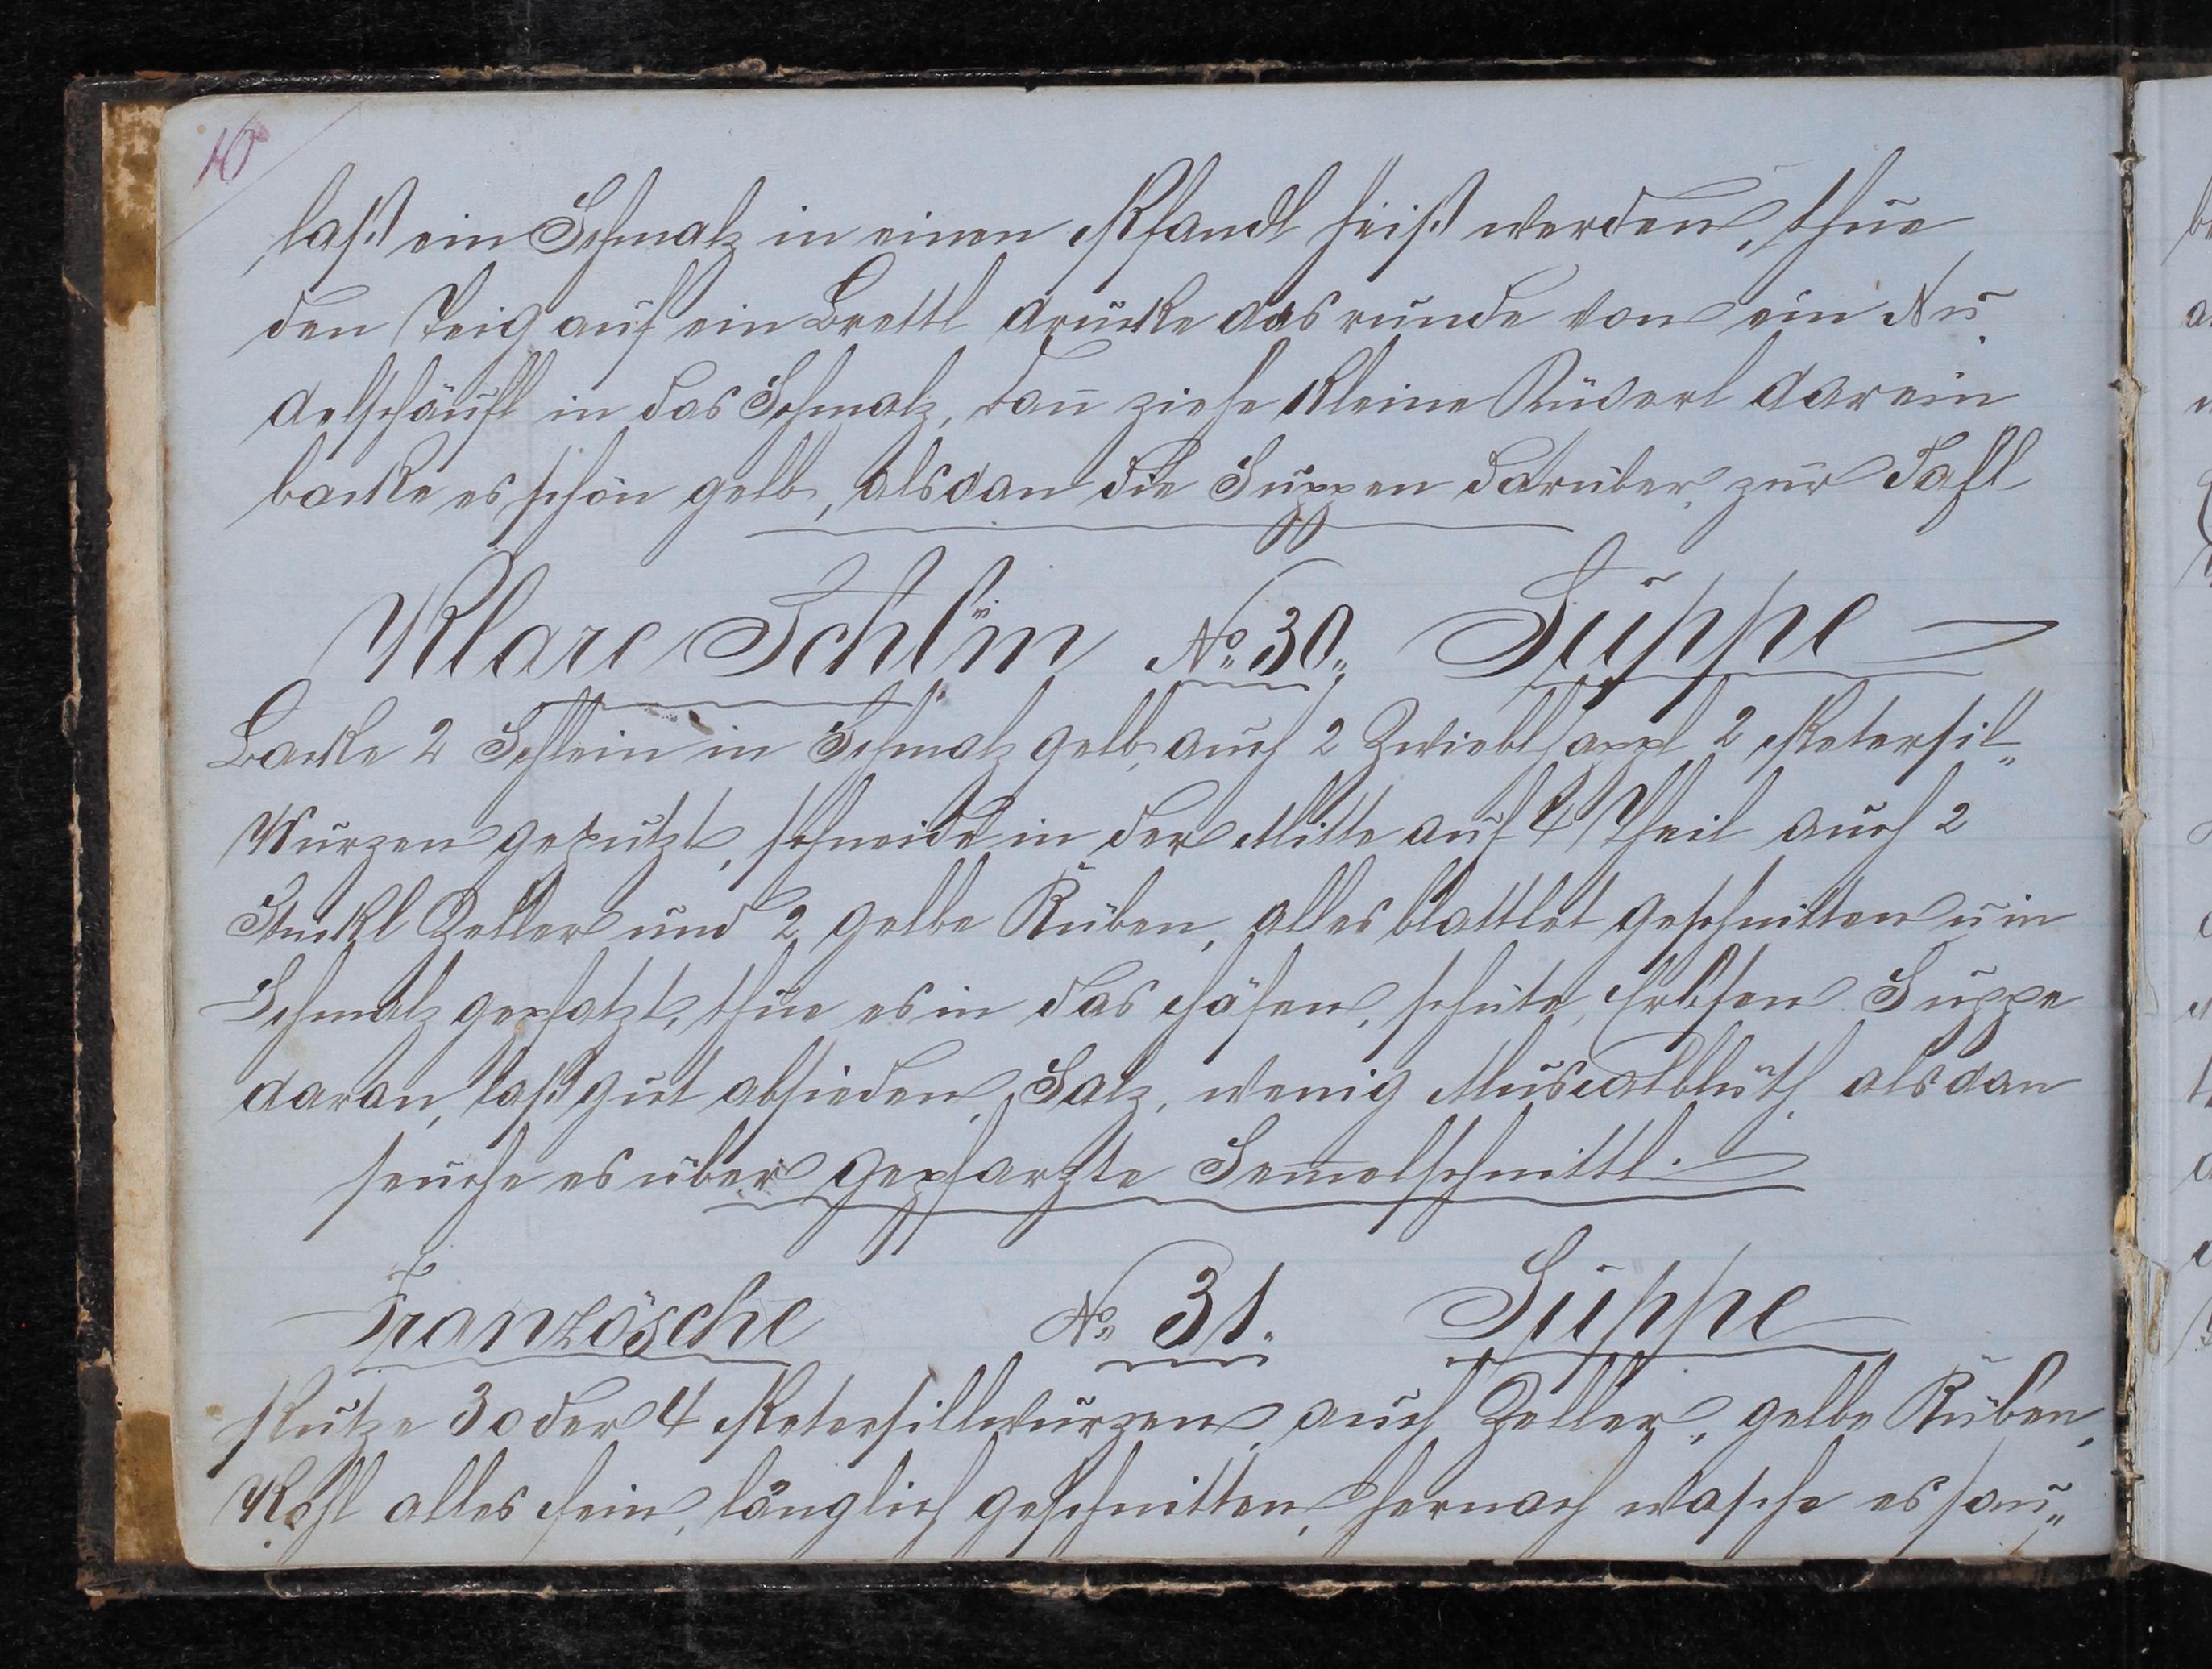 10
laßt ein Schmalz in einen Pfandl heiß werden, thue
den Teig auf ein Brettl drucke das runde von ein Nu-
delschäufl in das Schmalz, dan̄ ziehe kleine Nüderl darein
backe es schön gelb, alsdan die Suppen darüber, zur Tafl
Klare Schlein No 30. Suppe
Backe 2 Schlein in Schmalz gelb, auch 2 Zwieblhappl 2 Petersil-
Wurzen geputzt, schneide in der Mitte auf 4 Theil auch 2
Stuckl Zeller und 2 gelbe Rüben, alles blattlet geschnitten u in
Schmalz gepfatzt, thue es in das Häfen, schüte, Erbsen Suppe
daran, laßt gut absieden, Salz, wenig Muscatblüth, alsdan
seuche es über gepfarzte Sem̄elschnittl.
Französche No 31. Suppe
Putze 3 oder 4 Petersillwurzen, auch Zeller, gelbe Rüben,
Köhl alles fein, länglich geschnitten, hernach wasche es sau-